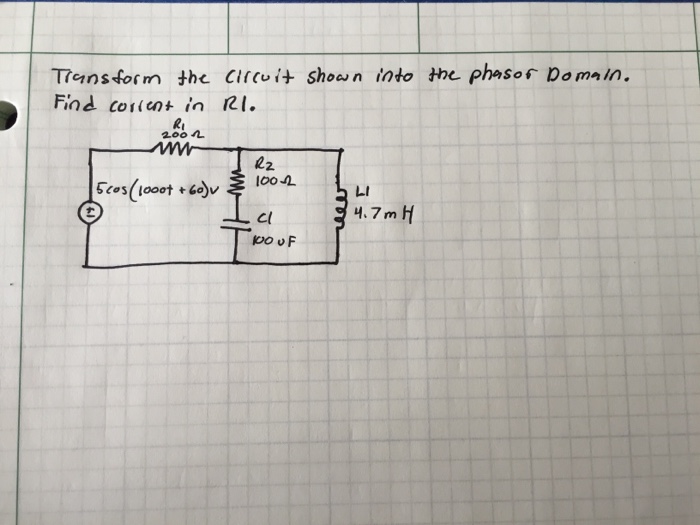 Transform the circuit shown into the phasor Domain.
Find current in R1.
R1
200Ω
R2
100Ω
5cos(1000t + 60)v
L1
4.7mH
±
C1
100uF